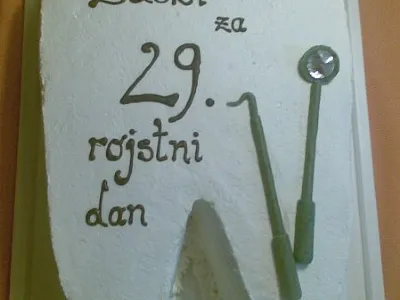 za
29.
rojstni
dan